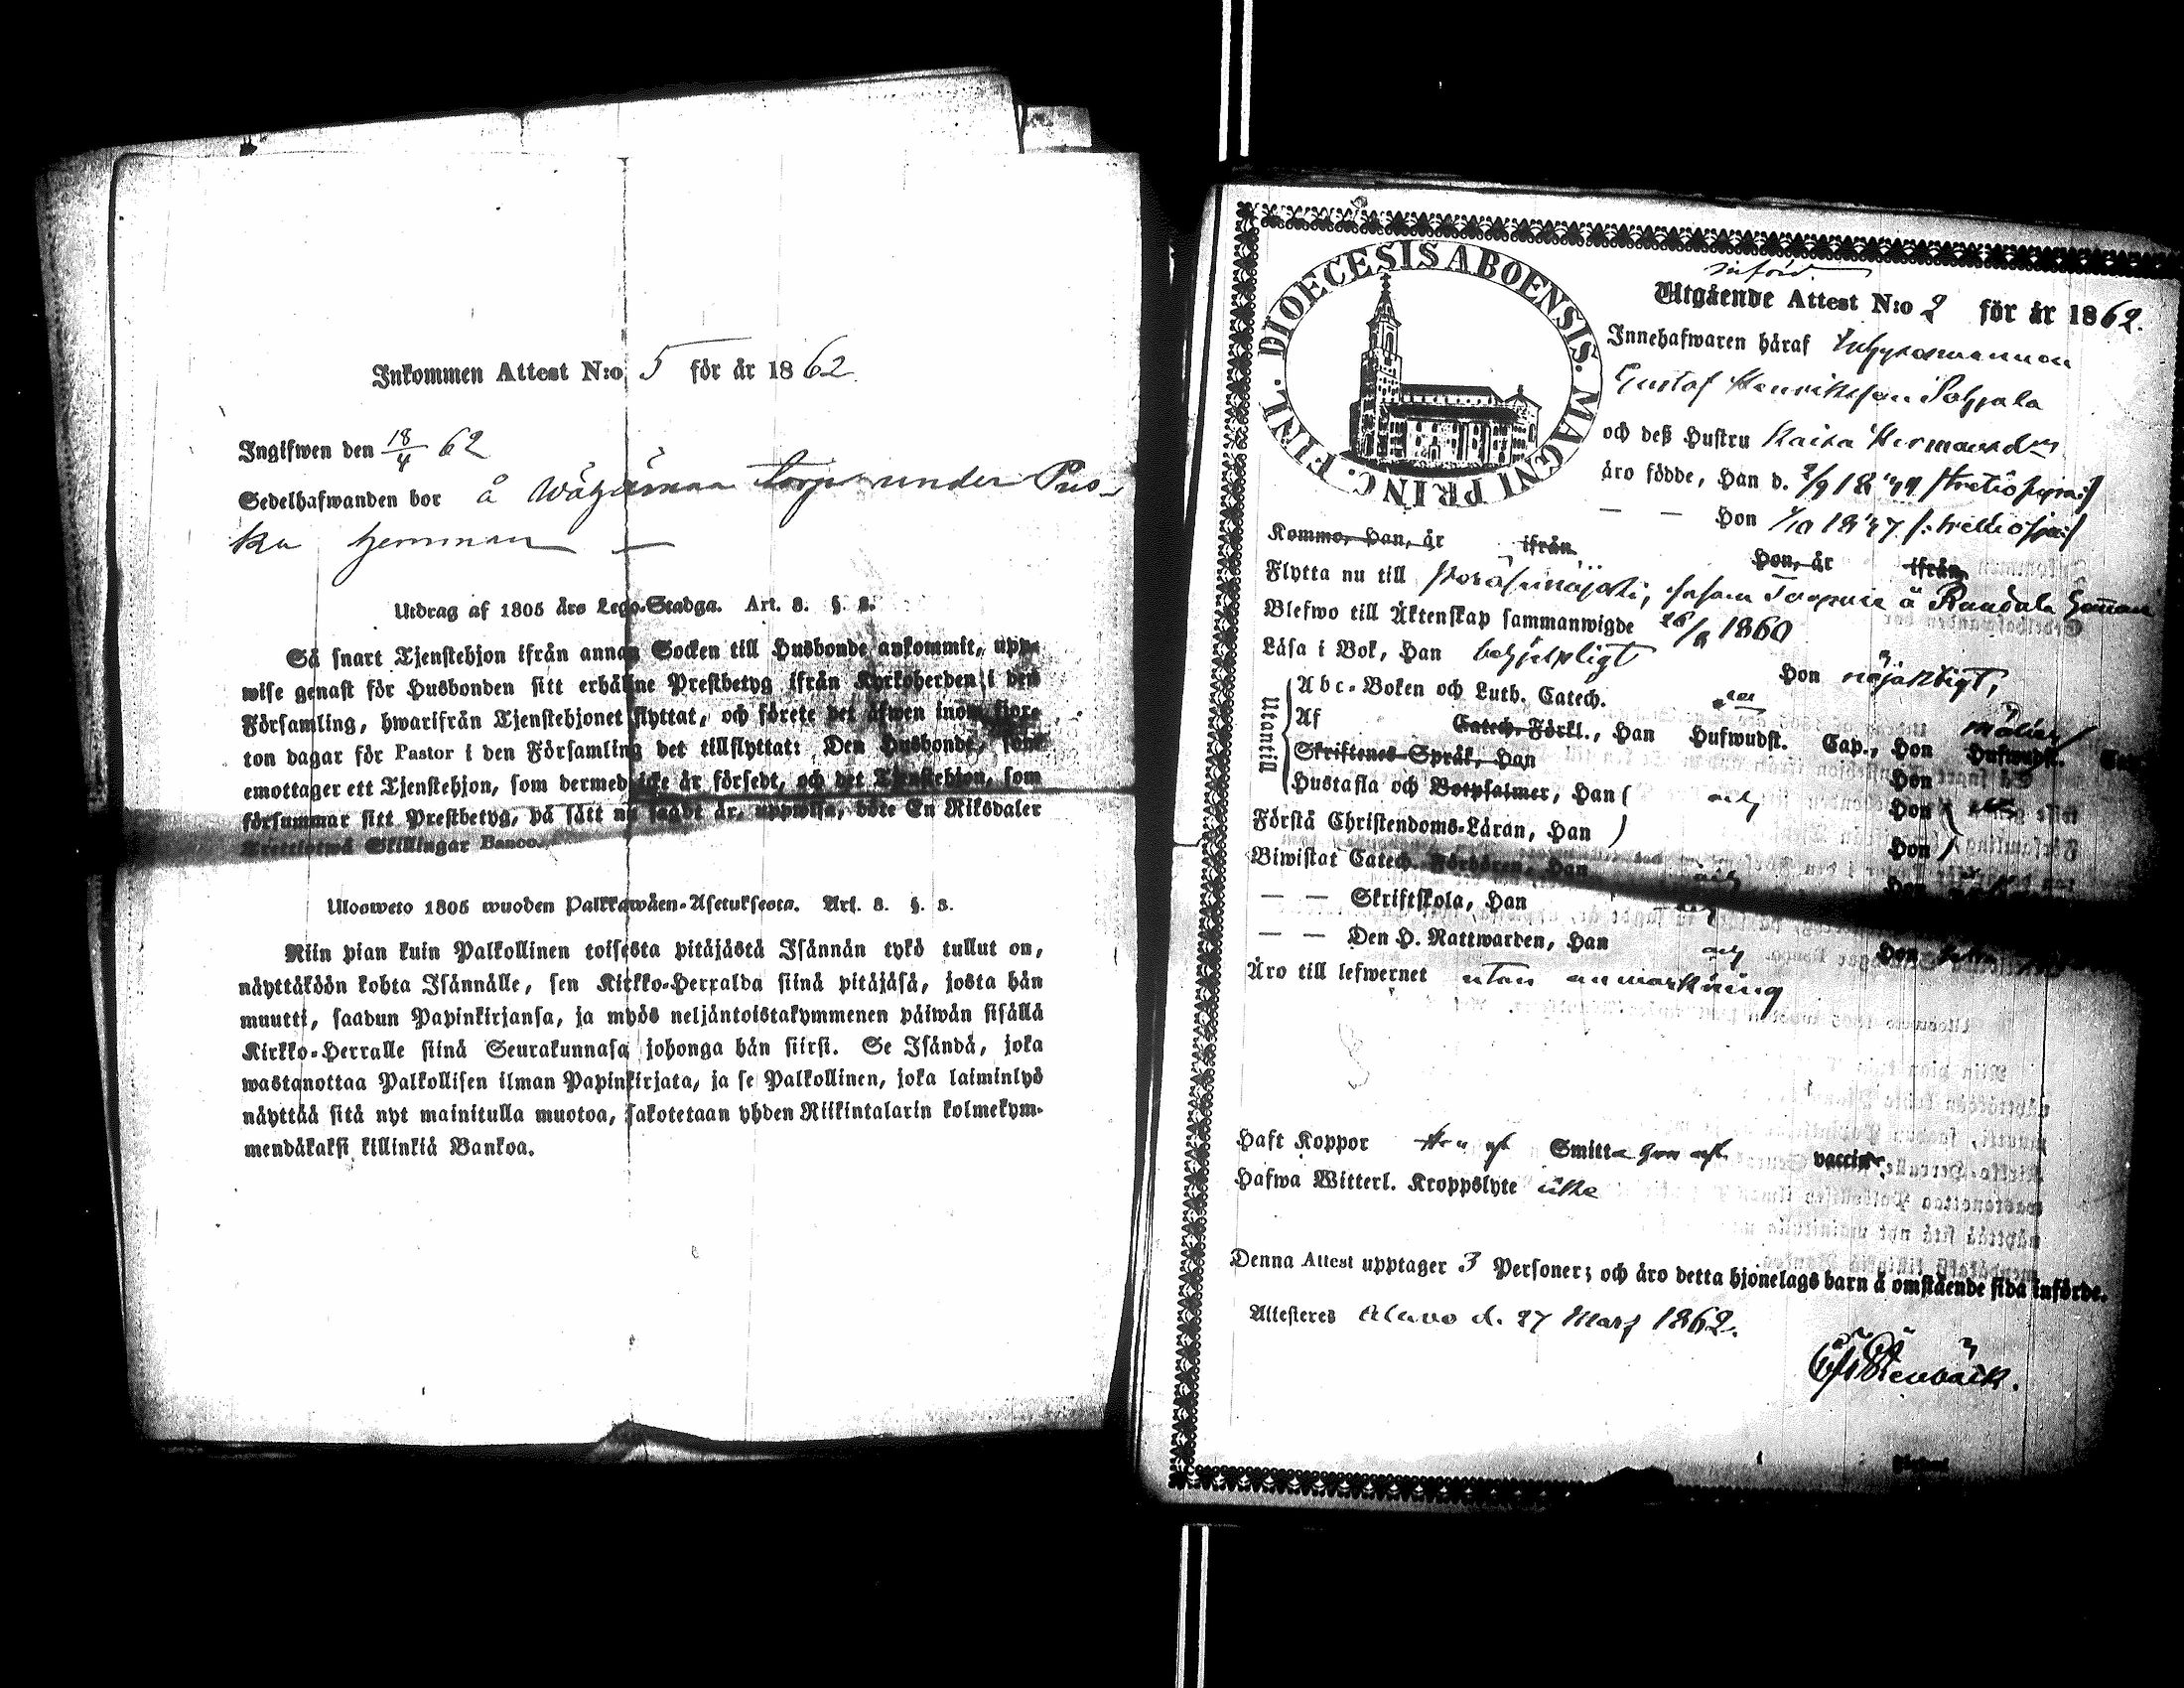 Inkommen Attest N:o 5 för år 1862
Ingifwen den 18/4 62
Sedelhafwanden bor å torp under Pus-
ka hemman
Utdrag af 1805 års Lego-Stadga. Art. 8. §. 8.
Så snart Tjenstehjon ifrån annan Socken till Husbonde ankommit, upp-
wise genast för Husbonden sitt erhållne Prestbetyg ifrån Kyrkoherden i den
Församling, hwarifrån Tjenstehjonet flyttat, och förete det äfwen inom fjor-
ton dagar för Pastor i den Församling det tillflyttat: Den Husbonde, som
emottager ett Tjenstehjon, som dermed icke är försedt, och det Tjenstehjon, som
försummar sitt Prestbetyg, på sätt nu sagdt är, uppwisa, böte En Riksdaler
Trettiotwå Skillingar Banco.
Ulosweto 1805 wuoden Palkkawäen-Asetuksesta. Art. 8. §. 8.
Niin pian kuin Palkollinen toisesta pitäjästä Isännän tykö tullut on,
näyttäköön kohta Isännälle, sen Kirkko-Herralda siinä pitäjäsä, josta hän
muutti, saadun Papinkirjansa, ja myös neljäntoistakymmenen päiwän sisällä
Kirkko-Herralle siinä Seurakunnasa johonga hän siirsi. Se Isändä, joka
wastanottaa Palkollisen ilman Papinkirjata, ja se Palkollinen, joka laiminlyö
näyttää sitä nyt mainitulla muotoa, sakotetaan yhden Riikintalarin kolmekym-
mendäkaksi killinkiä Bankoa.
DIOECESIS ABOENSIS. MAGNI PRINC. FINL.
införd
Utgående Attest N:o 2 för år 1862.
Innehafwaren häraf
Gustaf Henriksson Pohjola
och deß Hustru Kaisa Hermansdr
äro födde, Han d.
— — Hon
Kommo, Han, år ifrån Hon, år ifrån
Flytta nu till å Raudala hemman
Blefwo till Äktenskap sammanwigde 1860
Läsa i Bok, Han behjelpligt Hon nöjaktigt,
Utantill
Abc-Boken och Luth. Catech.
Af Catech. Förkl., Han Hufwudst. Cap., Hon Hufwudst. Cap.
Skriftenes Språk, Han Hon
Hustafla och Botpsalmer, Han Hon
Förstå Christendoms-Läran, Han Hon
Biwistat Catech. Förhören, Han Hon
— — Skriftskola, Han
— — Den H. Nattwarden, Han Hon
Äro till lefwernet utan anmärkning
Haft Koppor Smitta vaccine
Hafwa Witterl. Kroppslyte icke
Denna Attest upptager 3 Personer; och äro detta hjonelags barn å omstående sida införde.
Attesteres Alavo d. 27 Mars 1862.
Stenbäck.